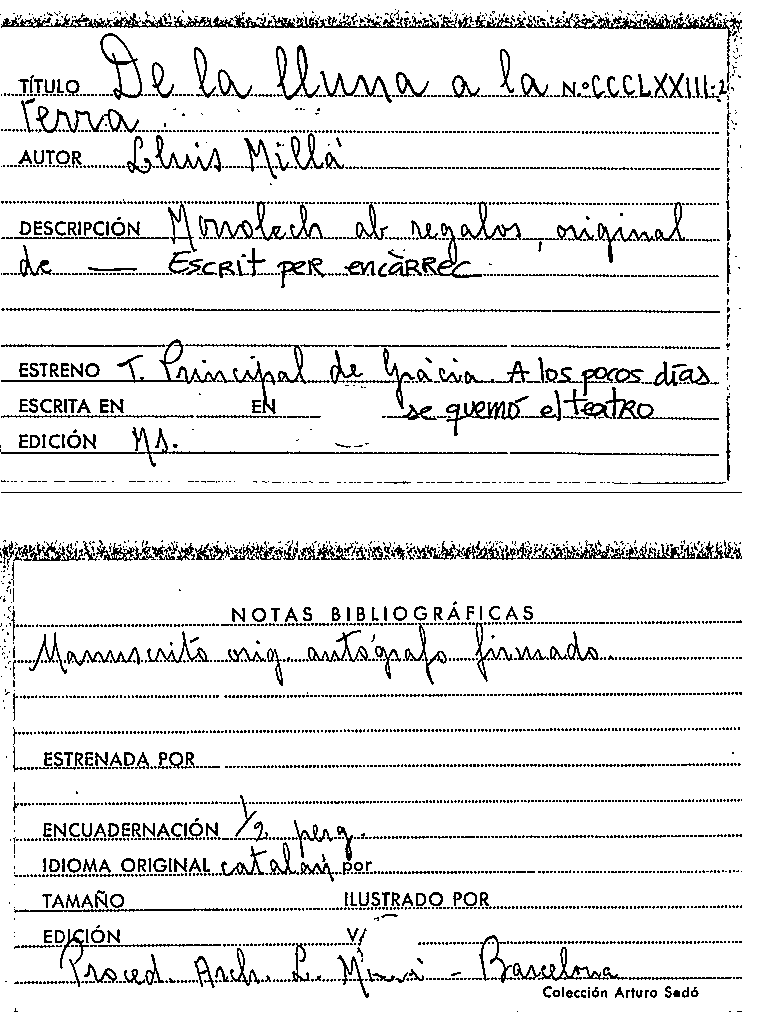 TÍTULO De la lluna a la N.º CCCLXXIII-2
Terra
AUTOR Lluis Millá
DESCRIPCIÓN Monolech ab regalos, original
de — Escrit per encàrrec
ESTRENO T. Principal de Gràcia. A los pocos días
ESCRITA EN EN se quemó el teatro
EDICIÓN Ms.
NOTAS BIBLIOGRÁFICAS
Manuscrito orig. autógrafo firmado.
ESTRENADA POR
ENCUADERNACIÓN 1/2 perg.
IDIOMA ORIGINAL catalán por
TAMAÑO ILUSTRADO POR
EDICIÓN V/
Proced. Arch. L. - Barcelona
Colección Arturo Sedó